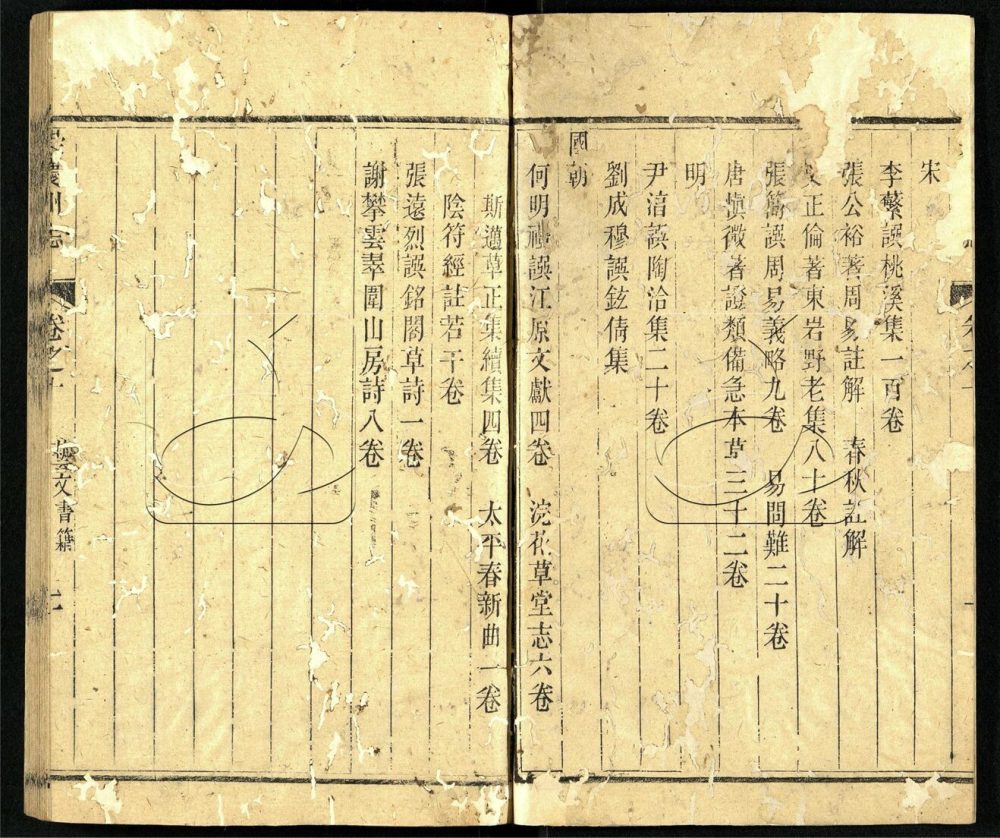 宋
李蘩譔桃溪集一百卷
張公裕著周易註解 春秋註解
正倫著東岩野老集八十卷
張 譔周易義略九卷 易問難二十卷
唐慎微著證類備急本草三十二卷
明
尹 譔陶洽集二十卷
劉成穆譔鉉倩集
國朝
何明禮譔江原文獻四卷 浣花草堂志六卷
斯邁草正集續集四卷 太平春新曲一卷
陰符經註若干卷
張遠烈譔銘閣草詩一卷
謝攀雲翠圍山房詩八卷
州志 卷之十 藝文書籍